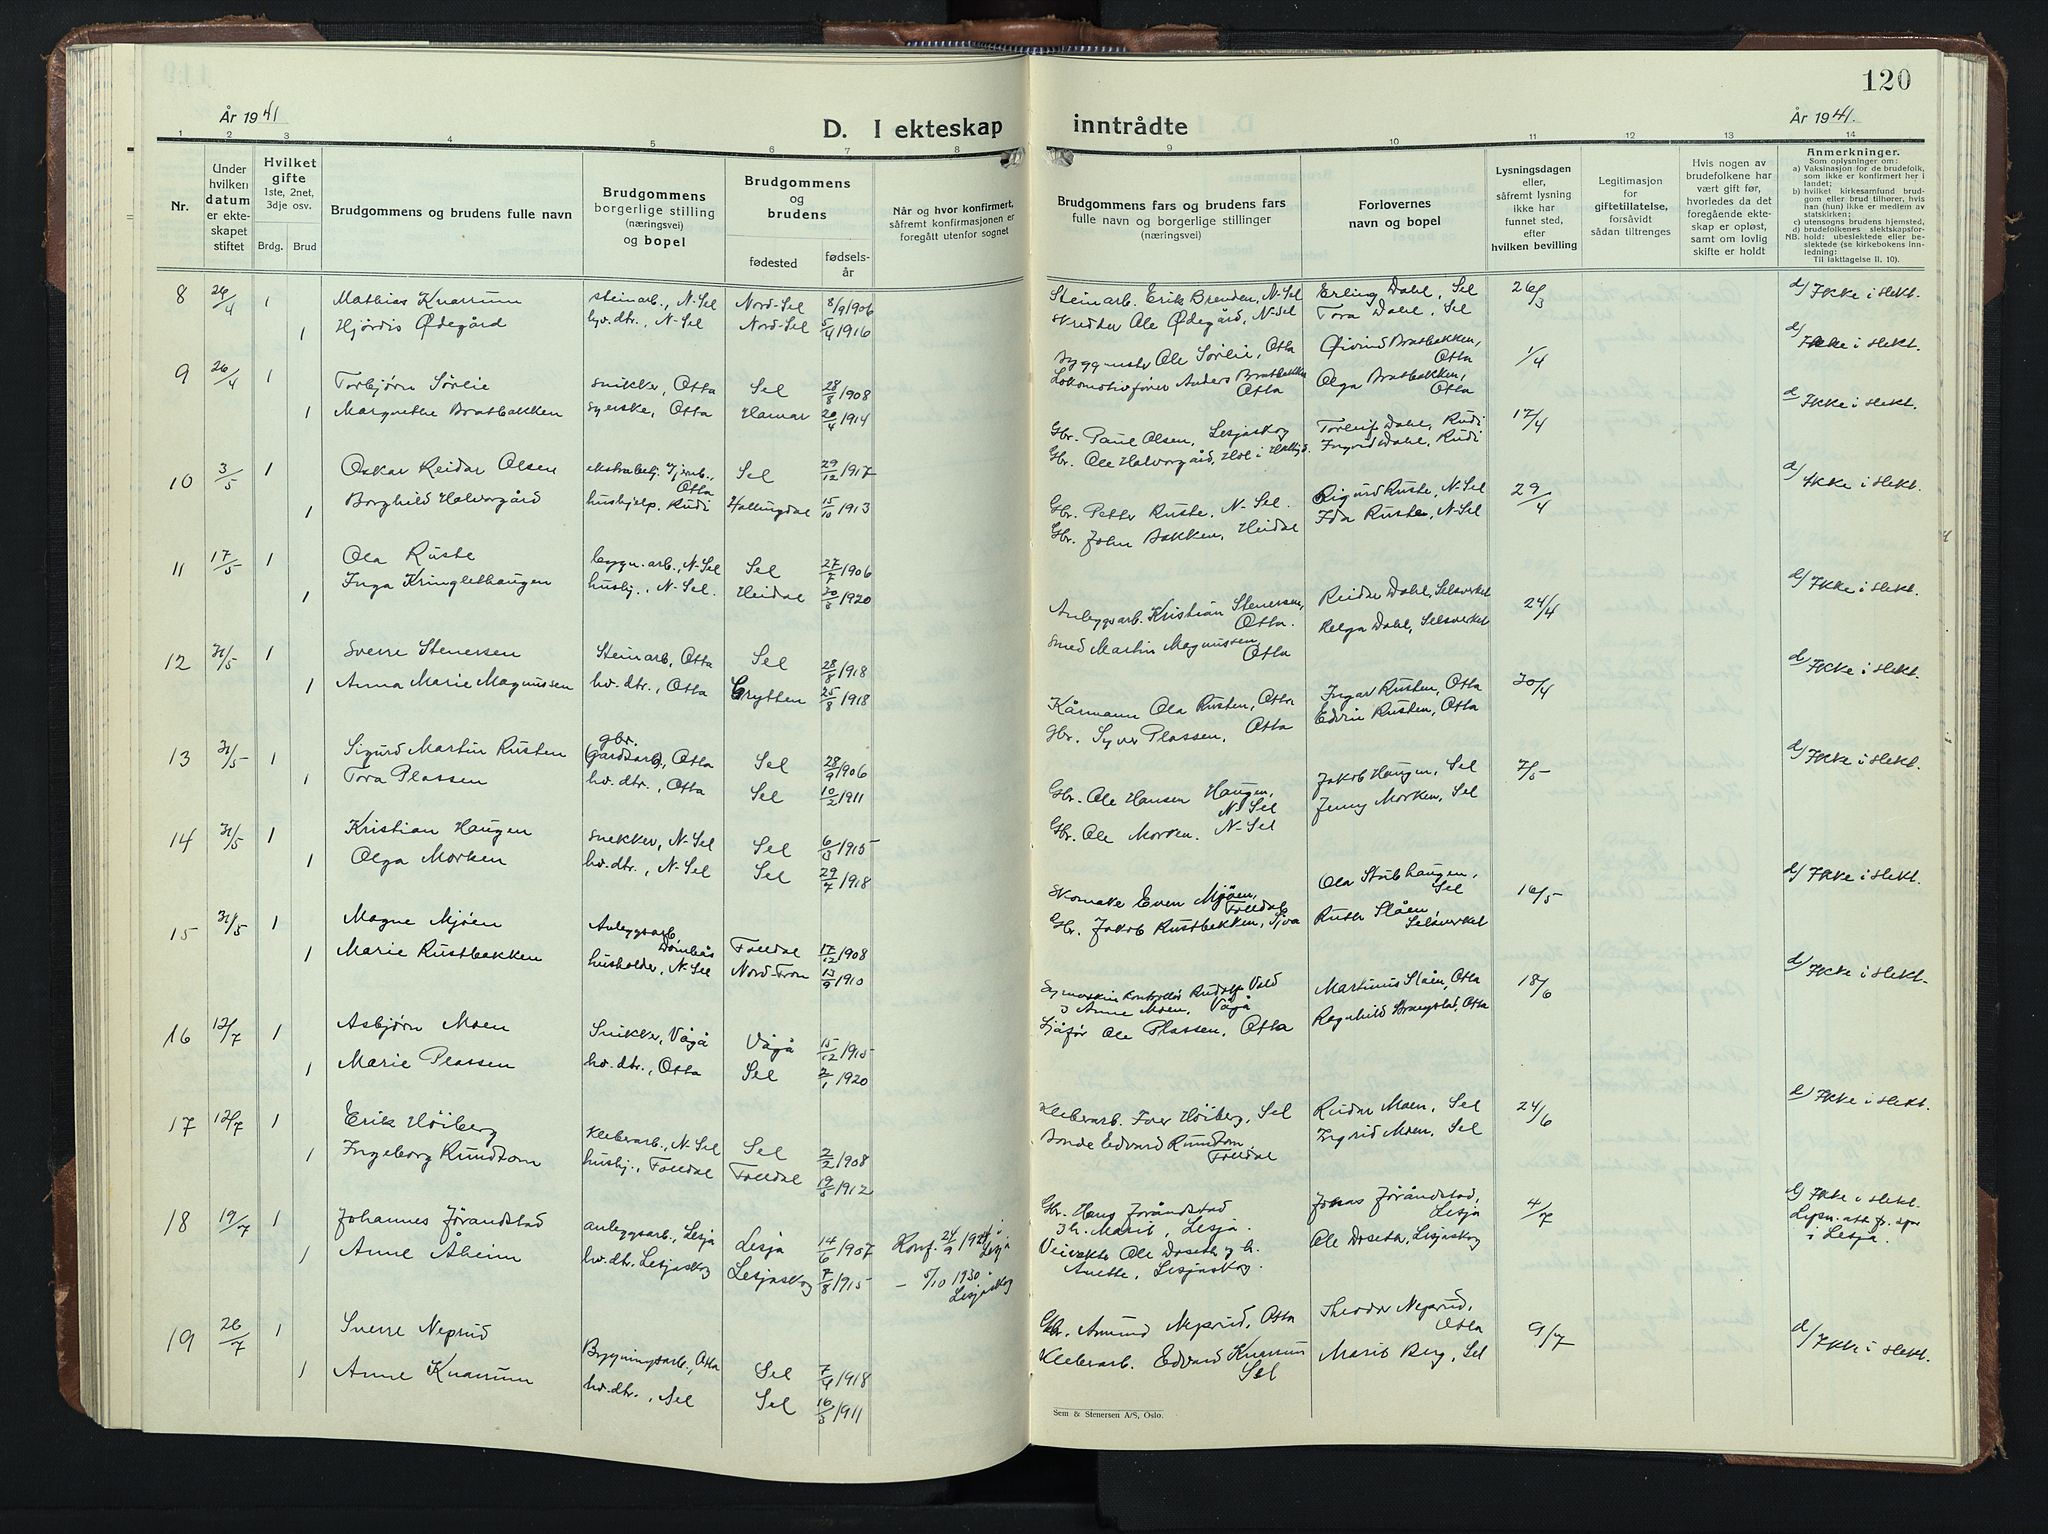 120
År 1941
År 1941.
D. I ekteskap inntrådte
1 2 3 4 5 6 7 8 9 10 11 12 13 14
Nr.
Under hvilken datum er ekteskapet stiftet
Hvilket gifte 1ste, 2net, 3dje osv.
Brdg. Brud
Brudgommens og brudens fulle navn
Brudgommens borgerlige stilling (næringsvei) og bopel
Brudgommens og brudens
fødested
fødselsår
Når og hvor konfirmert, såfremt konfirmasjonen er foregått utenfor sognet
Brudgommens fars og brudens fars fulle navn og borgerlige stillinger (næringsvei)
Forlovernes navn og bopel
Lysningsdagen eller, såfremt lysning ikke har funnet sted, efter hvilken bevilling
Legitimasjon for giftetillatelse, forsåvidt sådan tiltrenges
Hvis nogen av brudefolkene har vært gift før, hvorledes da det foregående ekteskap er opløst, samt om lovlig skifte er holdt
Anmerkninger.
Som oplysninger om:
a) Vaksinasjon for de brudefolk, som ikke er konfirmert her i landet;
b) hvilket kirkesamfund brudgom eller brud tilhører, hvis han (hun) ikke er medlem av statskirken;
c) utensogns brudens hjemsted,
d) brudefolkenes slektskapsforhold: ubeslektede eller beslektede (se kirkebokens innledning:
NB. Til Iakttagelse II, 10).
8 26/4 1 Mathias Knarrum steinarb., N-Sel Nord-Sel 8/9 1906 Steinarb. Erik Brenden, N-Sel Erling Dahl, Sel 26/3 d/ Ikke i slekt.
1 Hjørdis Ødegård hv. dtr., N-Sel Nord-Sel 5/4 1916 Skredder Ole Ødegård, N-Sel Tora Dahl, Sel
9 26/4 1 Torbjørn Sørlie snikker, Otta Sel 28/8 1908 Byggmester Ole Sørlie, Otta Øivind Bratbakken, Otta 1/4 d/ Ikke i slekt.
1 Margrethe Bratbakken syerske, Otta Hamar 20/4 1914 Lokomotivfører Anders Bratbakken Otta Olga Bratbakken, Otta
10 3/5 1 Oskar Reidar Olsen ekstrabetj. Jernb., Otta Sel 29/12 1917 Gbr. Paul Olsen, Lesjaskog Torleif Dahl, Rudi 17/4 d Ikke i slekt.
1 Borghild Halvorgård hushjelp, Rudi Hallingdal 15/10 1913 Gbr. Ole Halvorgård, Hol i Hallingd. Ingrid Dahl, Rudi
11 17/5 1 Ola Ruste bygn. arb., N-Sel Sel 27/7 1906 Gbr. Petter Ruste, N-Sel. Sigurd Ruste, N-Sel 29/4 d/ Ikke i slekt.
1 Inga Kringlethaugen hushj., N-Sel. Heidal 30/8 1920 Gbr. John Bakken, Heidal Ida Ruste, N-Sel
12 31/5 1 Sverre Stenersen Steinarb, Otta Sel 28/8 1918 Anleggsarb. Kristian Stenersen, Otta. Reidar Dahl, Selsverket 24/4 d/ Ikke i slekt.
1 Anna Marie Magnussen hv. dtr., Otta Grytten 25/8 1918 Smed Martin Magnussen Otta Helga Dahl, Selsverket
13 31/5 1 Sigurd Martin Rusten gbr. (Gardsarb), Otta Sel 28/9 1906 Kårmann Ola Rusten, Otta Ingar Rusten, Otta 30/4 d/ Ikke i slekt.
1 Tora Plassen hv. dtr., Otta Sel 10/2 1911 Gbr. Syver Plassen, Otta Edvin Rusten, Otta
14 31/5 1 Kristian Haugen snekker, N-Sel Sel 6/3 1915 Gbr. Ole Hansen Haugen, N-Sel Jakob Haugen, Sel 7/5 d/ Ikke i slekt.
1 Olga Morken hv. dtr., N-Sel Sel 29/7 1918 Gbr. Ole Morken. N-Sel Jenny Morken, Sel
15 31/5 1 Magne Mjøen Anleggsarb Dombås Folldal 17/12 1908 Skomaker Even Mjøen, Folldal Ola Stubhaugen, Sel 16/5 d/ Ikke i slekt.
1 Marie Rustbakken husholder, N-Sel Nord-Fron 13/9 1910 Gbr. Jakob Rustbakken, Sjoa Ruth Slåen Selsverket
16 12/7 1 Asbjørn Moen Snikker, Vågå Vågå 15/12 1915 Symaskin kontrollør Rudolf Vold og Anne Moen, Vågå Martinus Slåen, Otta 18/6 d/ Ikke i slekt.
1 Marie Plassen hv. dtr., Otta Sel 2/1 1920 Sjåfør Ole Plassen, Otta Ragnhild Strangstad, Otta
17 12/7 1 Erik Høiberg Kleberarb., N-Sel Sel 2/2 1908 Kleberarb. Iver Høiberg, Sel Reidar Moen, Sel 24/6 d/ Ikke i slekt.
1 Ingeborg Rundtom hushj., Folldal Folldal 19/5 1912 Bonde Edvard Rundtom, Folldal Ingrid Moen, Sel
18 19/7 1 Johannes Jørandstad anleggsarb., Lesja Lesja 14/6 1907 Konf. 24/9 1921 i Lesja Gbr. Hans Jørandstad og h. Marit, Lesja. Jonas Jørandstad, Lesja 4/7 d/ Ikke i slekt. Lysn. att. fr. spr i Lesja.
1 Anne Åheim hv. dtr, Lesjaskog Lesjaskog 7/8 1915 – 5/10 1930 Lesjaskog Veivokter Ole Doseth og h. Anette, Lesjaskog. Ole Doseth, Lesjaskog
19 26/7 1 Sverre Neprud Bygningsarb., Otta Sel 7/4 1918 Gbr. Amund Neprud, Otta Theodor Neprud, Otta 9/7 d/ Ikke i slekt.
1 Anne Knarrum hv. dtr., Sel Sel 16/3 1911 Kleberarb. Edvard Knarrum Sel Marit Berg, Sel
Sem & Stenersen A/S, Oslo.